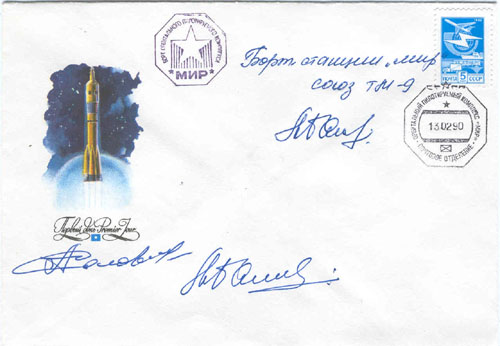 БОРТ ОРБИТАЛЬНОГО ПИЛОТИРУЕМОГО КОМПЛЕКСА
МИР
ПОЧТА 5 СССР
Борт станции „Мир
союз ТМ-9
ОРБИТАЛЬНЫЙ ПИЛОТИРУЕМЫЙ КОМПЛЕКС «МИР»
13.02.90
ПОЧТОВОЕ ОТДЕЛЕНИЕ
Первый день Premier Jour